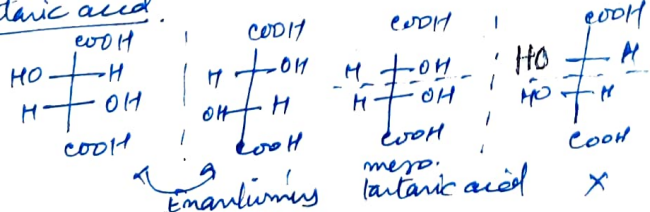 taric acid.
COOH COOH COOH COOH
HO H H OH H OH HO H
H OH OH H H OH HO H
COOH COOH COOH COOH
Enantiomers meso. X
tartaric acid